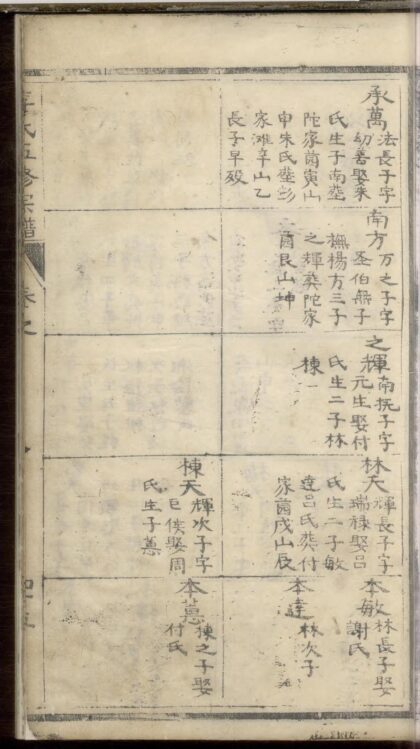 承萬
法長子字
幼善娶朱
氏生子南塟
陀家嵒寅山
申朱氏塟彭
家滩辛山乙
長子早殁
南方
万之子字
圣伯無子
撫楊方三子
之輝葬陀家
嵒艮山坤
之輝
南抚子字
元生娶付
氏生二子林
棟一
林天
輝長子字
瑞禄娶吕
氏生二子敏
達吕氏葬付
家嵒戌山辰
棟天
輝次子字
巨侯娶周
氏生子蕙
本敏
林長子娶
謝氏
本達
林次子
本蕙
棟之子娶
付氏
氏五修宗譜
卷之